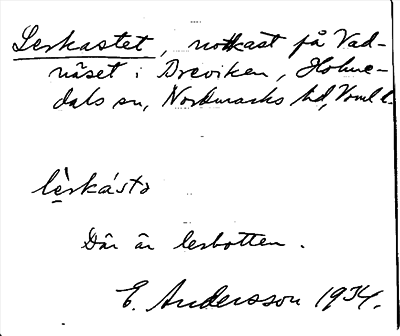 Lerkastet, notkast på Vad-
näset i Dreviken, Holme-
dals sn, Nordmarks hd, Vrml l.
lèrkástə
Där är lerbotten.
E. Andersson 1934.